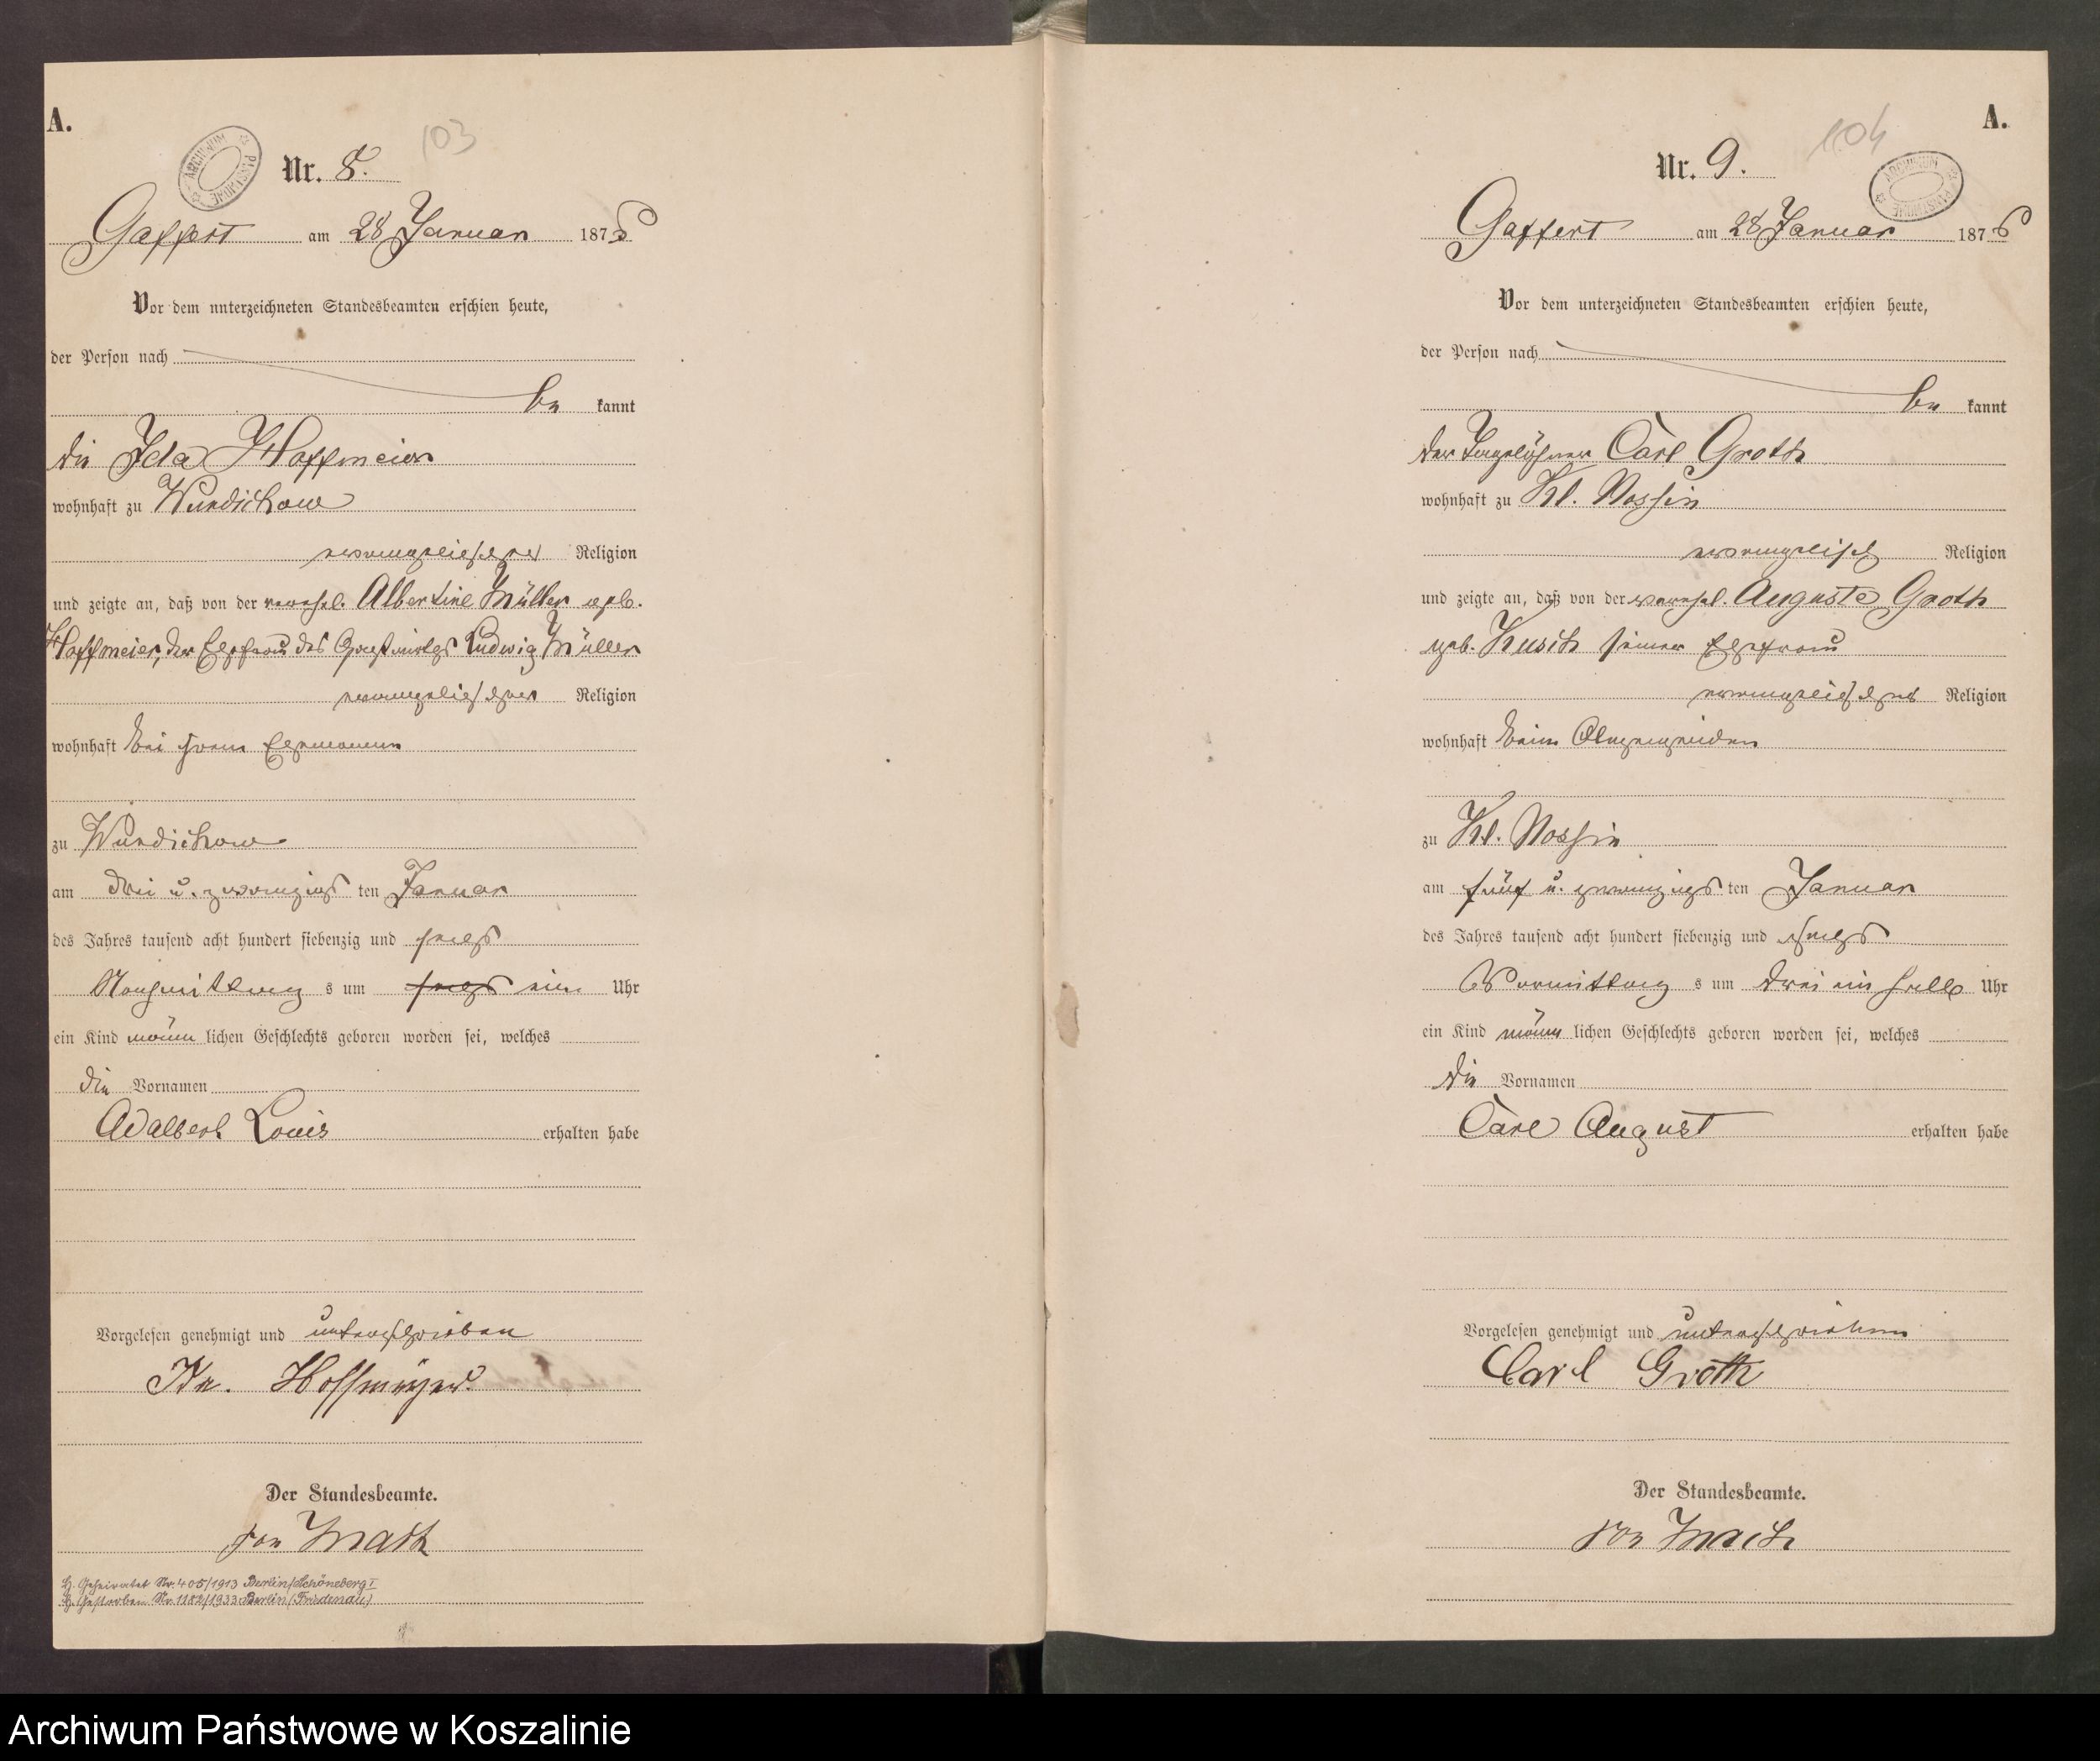 A.
103
ARCHIWUM PAŃSTWOWE
Nr. 8.
Gaffert am 28 Januar 1876
Vor dem unterzeichneten Standesbeamten erschien heute,
der Person nach
be kannt
die Ida Hoffmeier
wohnhaft zu Wundichow
evangelischer Religion
und zeigte an, daß von der verehel. Albertine Müller geb.
Hoffmeier, der Ehefrau des Gastwirths Ludwig Müller
evangelischer Religion
wohnhaft bei ihrem Ehemann
zu Wundichow
am drei u. zwanzigs ten Januar
des Jahres tausend acht hundert siebenzig und sechs
Nachmittag s um sechs ein Uhr
ein Kind männ lichen Geschlechts geboren worden sei, welches
die Vornamen
Adalbert Louis erhalten habe
Vorgelesen genehmigt und unterschrieben
Hoffmeyer
Der Standesbeamte.
von Mach
H. Geheiratet Nr. 405/1913 Berlin/Schöneberg I
H. Gestorben Nr. 1282/1933 Berlin (Friedenau)
A.
104
ARCHIWUM PAŃSTWOWE
Nr. 9.
Gaffert am 28 Januar 1876
Vor dem unterzeichneten Standesbeamten erschien heute,
der Person nach
be kannt
der Tagelöhner Carl Groth
wohnhaft zu Kl. Nossin
evangelisch Religion
und zeigte an, daß von der verehel. Auguste Groth
geb. Kusch seiner Ehefrau
evangelischer Religion
wohnhaft beim Anzeigenden
zu Kl. Nossin
am fünf u. zwanzigs ten Januar
des Jahres tausend acht hundert siebenzig und sechs
Vormittag s um drei ein halb Uhr
ein Kind männ lichen Geschlechts geboren worden sei, welches
die Vornamen
Carl August erhalten habe
Vorgelesen genehmigt und unterschrieben
Carl Groth
Der Standesbeamte.
von Mach
Archiwum Państwowe w Koszalinie